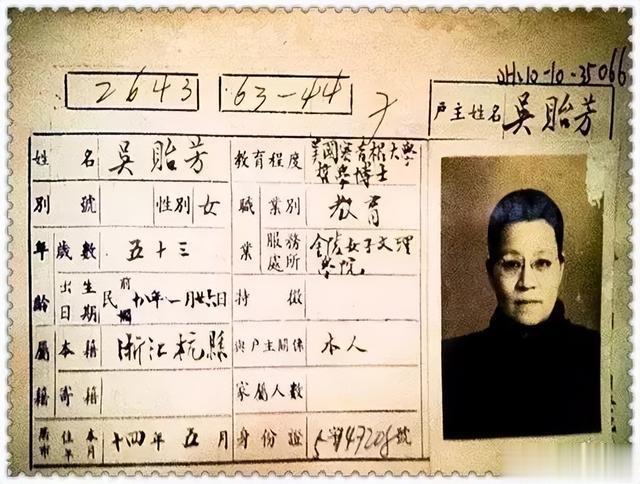 OH10-10-35066
2643 63-44
戶主姓名 吳貽芳
姓名 吳貽芳 教育程度 美國密育根大學哲學博士
別號 性別 女 職業 業別 教育
年齡 歲數 五十三 服務處所 金陵女子文理學院
出生日期 民前十八年一月廿六日 特徵
屬籍 本籍 浙江杭縣 與戶主關係 本人
寄籍 家屬人數
住本市年月 十四年五月 身份證 字4720號